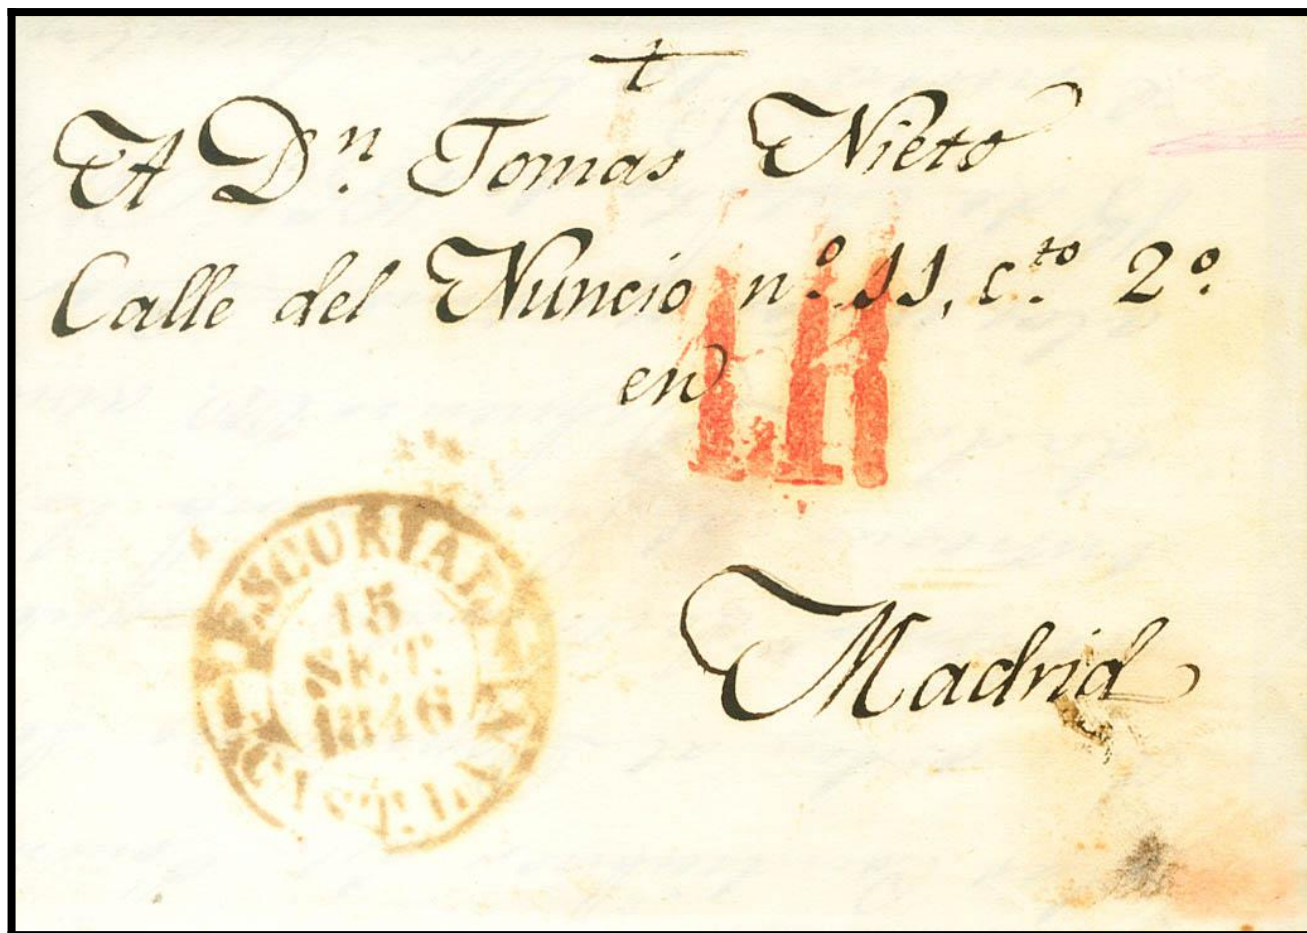 A D.n Tomas Nieto
Calle del Nuncio nº 11, c.to 2º
en
Madrid
ESCORIAL
15
SET.
1846